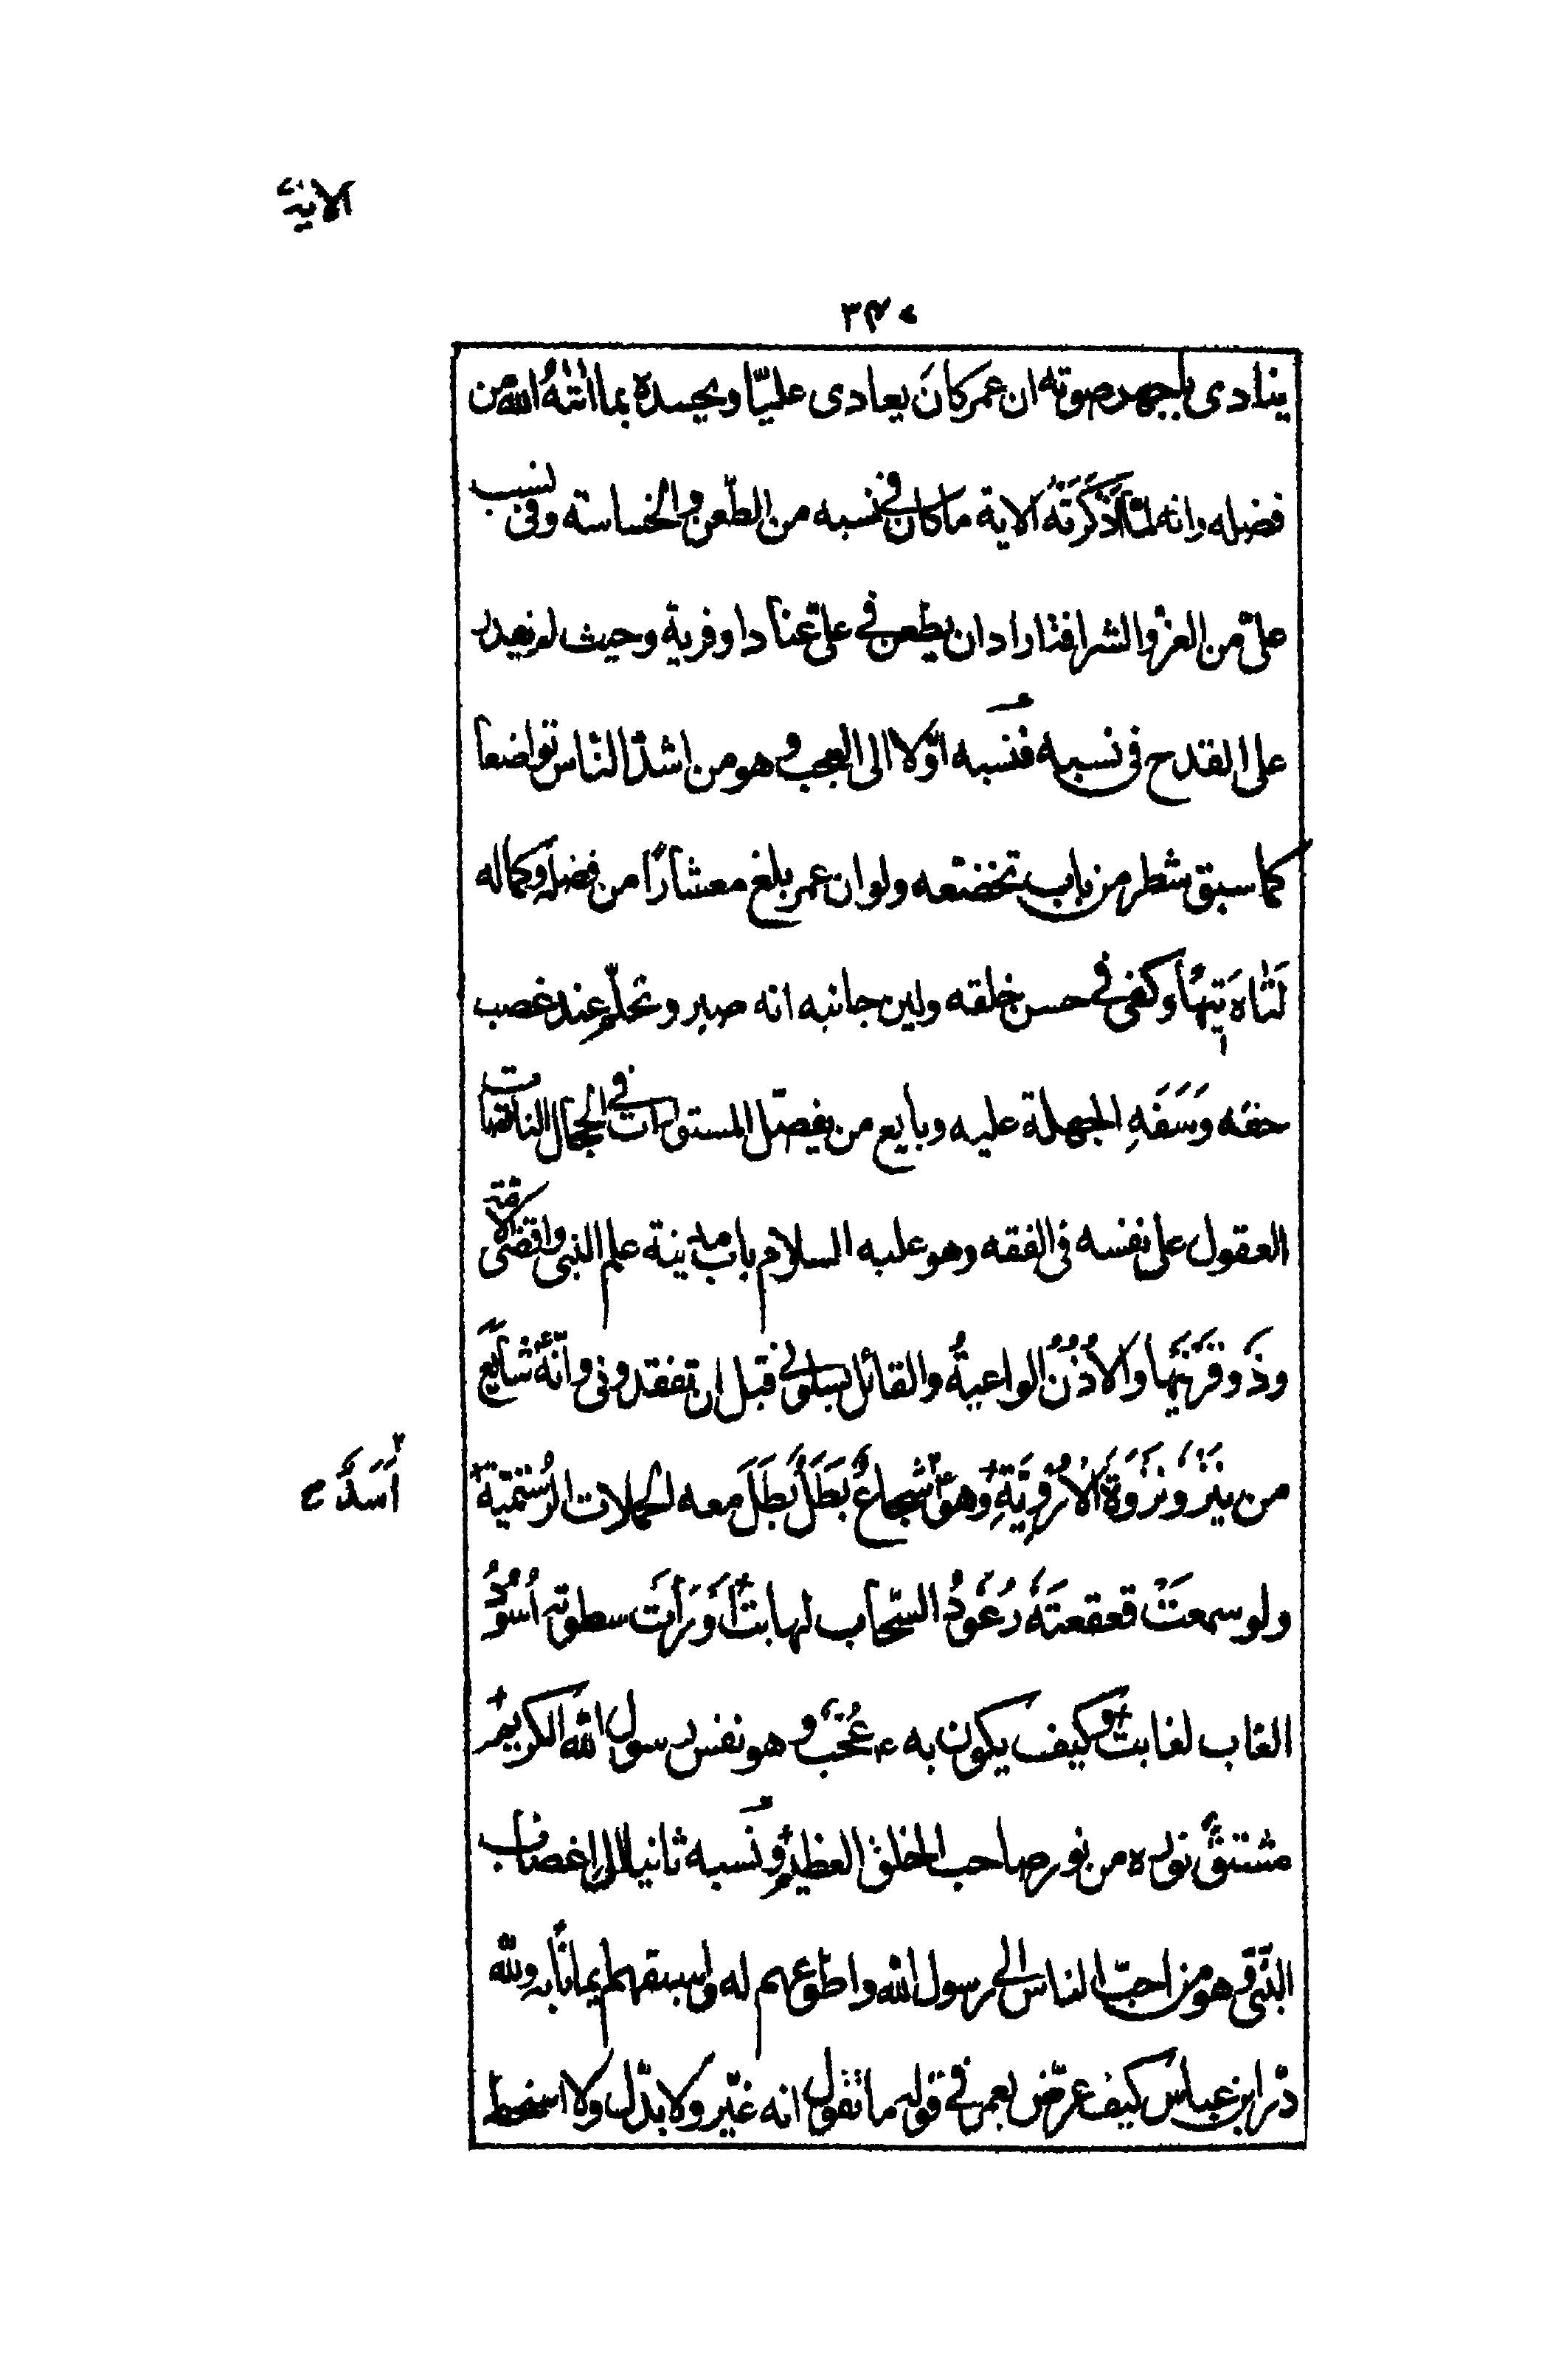 الاية
٣٤٠
ينادى باجهر صوته ان عمر كانَ يعادى عليّا ويحسده بما اٰتٰهُ الله من
فضله وانه لمّا اَذكَرَتهُ الاية ما كان فى نسبه من الطّعن والخساسته وفى نسب
علىّ من العزّ والشرافة اراد ان يطعن فى علىّ عنادا وفرية وحيث لم يقدر
على القدح فى نسبه فنسبه اوّلا الى العجب وهو من اشدّ النّاس تواضعا
كما سبق شطر من باب تخضّعه ولو ان عمر بلغ معشارًا من فضله وكماله
لَتاه تِيهًا وكفى فى حسن خلقه ولين جانبه انه صبر وتحلّم عند غصب
حقه وَسَفَهِ الجهلة عليه وبايع من يفضّل المستورات فى الحجال الناقصات
العقول على نفسه فى الفقه وهو عليه السلام باب مدينة علم النبى واقضى الامّة
وذو قرنَيها والاُذُنُ الواعيةُ والقائل سلونى قبل ان تفقدونى وانّهُ شايع
من ينزو نزوَةَ وهوَ شجاعٌ بَطَلٌ بَطَلَ معه الحملات الرُستميّة
اَسَدٌ ح
ولو سمعَتْ قعقعتَهُ رُعُودُ السّحاب لهابت اَوْ رَأَت سطوته اُسُودُ
الغاب لغابت وكيف يكون به ع عُجْبٌ وهو نفس رسول الله الكريم
مشتقٌّ نوره من نور صاحب الخلق العظيم ونسبه ثانيا الى اغضاب
النّبى وهو من احبّ الناس الى رسول الله واطوعهم له واسبقهم ايمانًا به ولله
درّ ابن عباس كيف عرّض بعمر فى قوله ما تقول انه غيّر ولا بدّل ولا اسخط